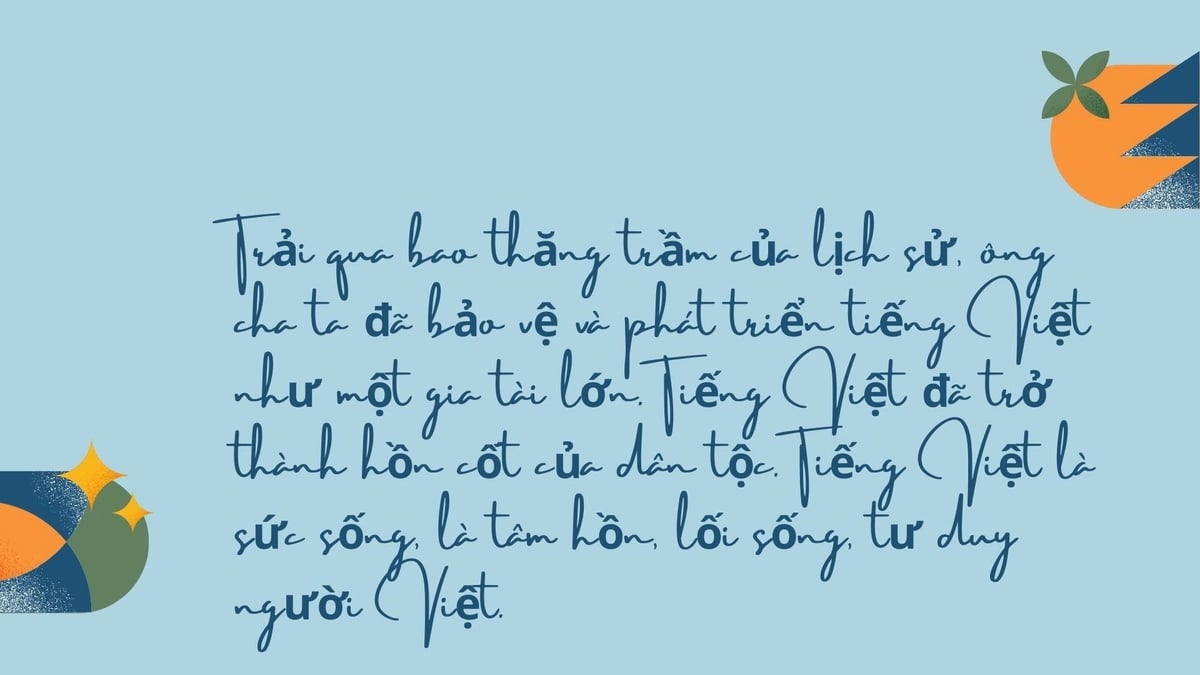 Trải qua bao thăng trầm của lịch sử, ông
cha ta đã bảo vệ và phát triển tiếng Việt
như một gia tài lớn. Tiếng Việt đã trở
thành hồn cốt của dân tộc. Tiếng Việt là
sức sống, là tâm hồn, lối sống, tư duy
người Việt.